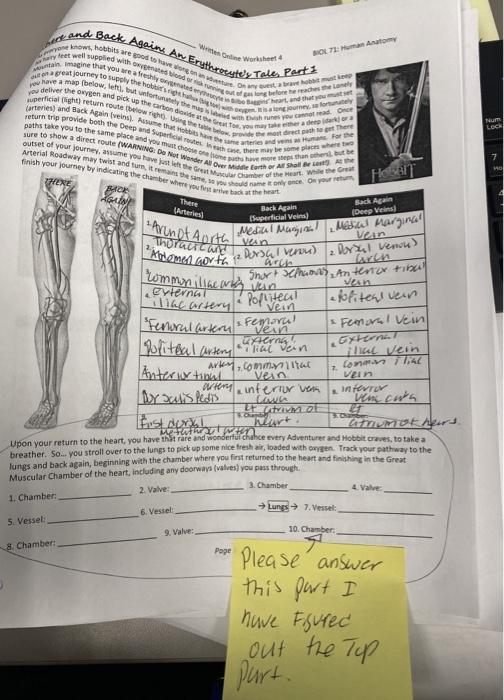 Written Online Worksheet 4
BIOL 71: Human Anatomy
There and Back Again: An Erythrocyte's Tale, Part 1
everyone knows, hobbits are good to have along on an adventure. On any quest, a brave hobbit must keep
feet well supplied with oxygenated blood or risk running out of gas long before he reaches the Lonely
Mountain. Imagine that you are a freshly oxygenated erythrocyte in Bilbo Baggins' heart, and that you must
out on a great journey to supply the hobbit's right hallux (big toe) with oxygen. It is a long journey, so fortunately
you have a map (below, left), but unfortunately the map is labeled with Elvish runes you cannot read. Once
you deliver the oxygen and pick up the carbon dioxide at the Great Toe, you may take either a deep (dark) or a
superficial (light) return route (below right). Using the table below, provide the most direct path to get There
(arteries) and Back Again (veins). Assume that Hobbits have the same arteries and veins as Humans. For the
return trip provide both the Deep and Superficial routes. In each case, there may be some places where two
paths take you to the same place and you must choose one (some paths have more steps than others), but be
sure to show a direct route (WARNING: Do Not Wonder All Over Middle Earth or All Shall Be Lost!). At the
outset of your journey, assume you have just left the Great Muscular Chamber of the Heart. While the Great
Arterial Roadway may twist and turn, it remains the same, so you should name it only once. On your return,
finish your journey by indicating the chamber where you first arrive back at the heart.
THERE
BACK AGAIN
There (Arteries)
Back Again (Superficial Veins)
Back Again (Deep Veins)
Medial Marginal vein
1. Medial Marginal vein
2. Dorsal venous arch
2. Dorsal venous arch
Common iliac
vein
External iliac artery
Popliteal vein
Popliteal vein
5. Femoral artery
5. Femoral vein
5. Femoral vein
Popliteal artery
External iliac vein
External iliac vein
artery
7. common iliac vein
7. Common iliac vein
Dorsalis Pedis
artery
inferior vena cava
inferior vena cava
First dorsal
Metatarsal artery
atrium of heart.
atrium of heart.
Upon your return to the heart, you have that rare and wonderful chance every Adventurer and Hobbit craves, to take a
breather. So... you stroll over to the lungs to pick up some nice fresh air, loaded with oxygen. Track your pathway to the
lungs and back again, beginning with the chamber where you first returned to the heart and finishing in the Great
Muscular Chamber of the heart, including any doorways (valves) you pass through.
1. Chamber: 2. Valve: 3. Chamber 4. Valve:
5. Vessel: 6. Vessel: → Lungs → 7. Vessel:
8. Chamber: 9. Valve: 10. Chamber:
Page
Please answer
this part I
have Figured
out the Top
Part.
Num
Lock
7